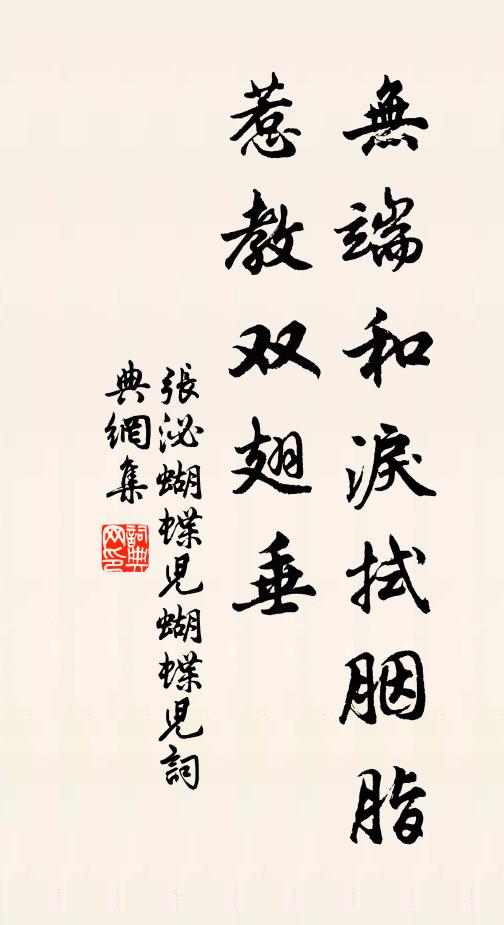 無端和淚拭胭脂
惹教双翅垂
張泌蝴蝶児蝴蝶児詞
典網集
詞典网印